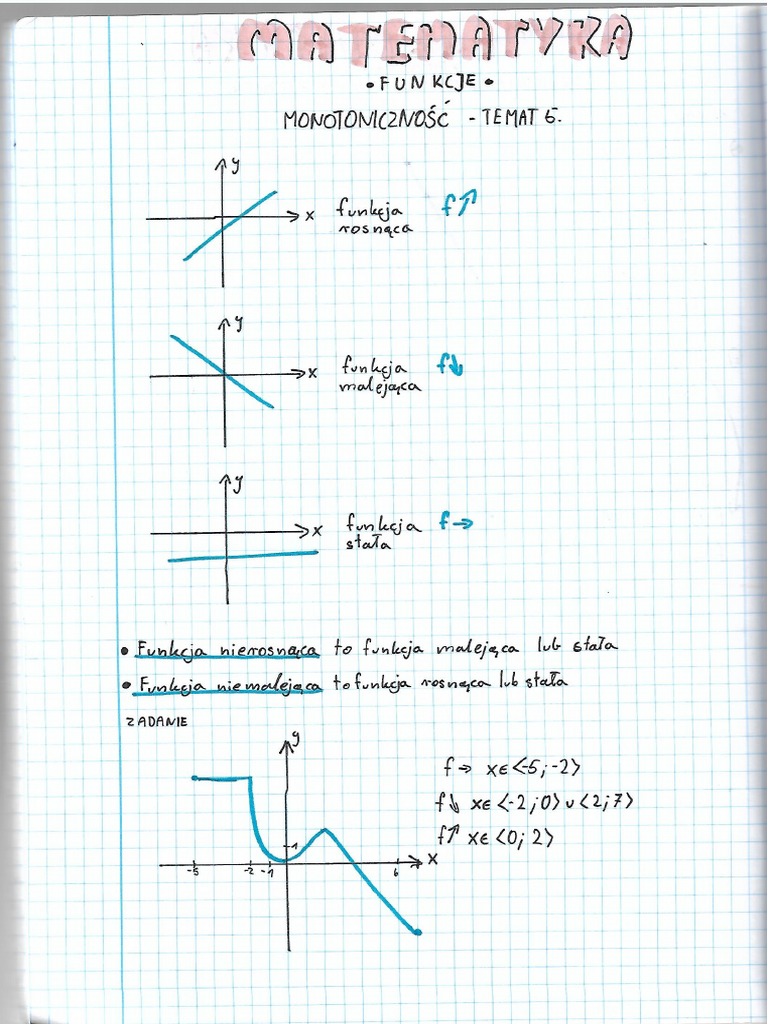 MATEMATYKA
• FUNKCJE •
MONOTONICZNOŚĆ - TEMAT 5.
y
x
funkcja f↗
rosnąca
y
x
funkcja f↓
malejąca
y
x
funkcja f→
stała
• Funkcja nierosnąca to funkcja malejąca lub stała
• Funkcja niemalejąca to funkcja rosnąca lub stała
ZADANIE
y
f→ x∈<-5;-2>
f↓ x∈<-2;0>∪<2;7>
f↗ x∈<0;2>
1
x
-5 -2 -1 6